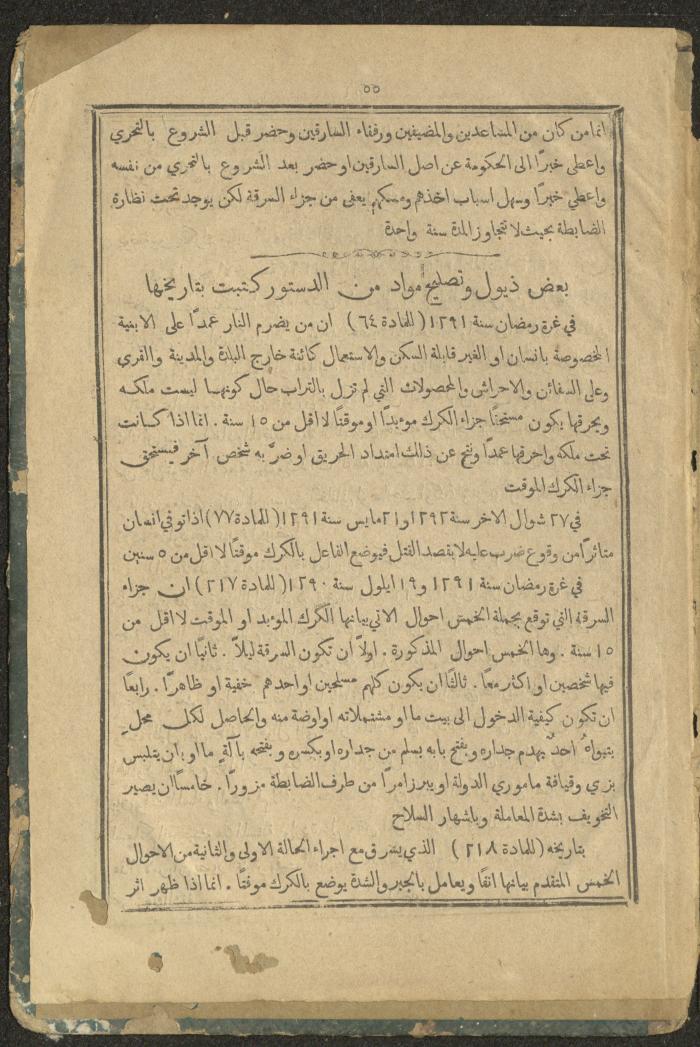 ٥٥
انما من كان من المساعدين والمضيفين ورفقاء السارقين وحضر قبل الشروع بالتحري
واعطى خبرًا الى الحكومة عن اصل السارقين او حضر بعد الشروع بالتحري من نفسه
واعطي خبرًا وسهل اسباب اخذهم ومسكهم يعفى من جزاء السرقة لكن يوجد تحت نظارة
الضابطة بحيث لا تتجاوز المدة سنة واحدة
بعض ذيول وتصليح مواد من الدستور كتبت بتاريخها
في غرة رمضان سنة ١٢٩١ (للمادة ٦٤) ان من يضرم النار عمدًا على الابنية
المخصوصة بانسان او الغير قابلة السكن والاستعمال كائنة خارج البلدة والمدينة والقرى
وعلى السفائن والاحراش والمحصولات التي لم تزل بالتراب حال كونها ليست ملكه
ويحرقها يكون مستحقًا جزاء الكرك موءبدًا او موقتًا لا اقل من ١٥ سنة . انما اذا كانت
تحت ملكه واحرقها عمدًا ونتج عن ذلك امتداد الحريق او ضرَّ به شخص آخر فيستحق
جزاء الكرك الموقت
في ٢٧ شوال الاخر سنة ١٢٩٢ و ٢١ مايس سنة ١٢٩١ (للمادة ٧٧) اذا توفي انسان
متاثرًا من وقوع ضرب عليه لا بقصد القتل فيوضع الفاعل بالكرك موقتًا لا اقل من ٥ سنين
في غرة رمضان سنة ١٢٩١ و ١٩ ايلول سنة ١٢٩٠ (للمادة ٢١٧) ان جزاء
السرقة التي توقع بجملة الخمس احوال الاتي بيانها الكرك الموءبد او الموقت لا اقل من
١٥ سنة . وها الخمس احوال المذكورة . اولاً ان تكون السرقة ليلاً . ثانيًا ان يكون
فيها شخصين او اكثر معًا . ثالثًا ان يكون كلهم مسلحين او احدهم خفية او ظاهرًا . رابعًا
ان تكون كيفية الدخول الى بيت ما او مشتملاته او اوضة منه والحاصل لكل محلٍ
يتبواهُ احدٌ بهدم جداره وبفتح بابه بسلم من جداره او بكسره وبفتحه بآلةٍ ما او بان يتلبس
بزي وقيافة ماموري الدولة او يبرز امرًا من طرف الضابطة مزورًا . خامسًا ان يصير
التخويف بشدة المعاملة وباشهار السلاح
بتاريخه (للمادة ٢١٨) الذي يسرق مع اجراء الحالة الاولى والثانية من الاحوال
الخمس المتقدم بيانها انفًا ويعامل بالجبر والشدة يوضع بالكرك موقتًا . انما اذا ظهر اثر